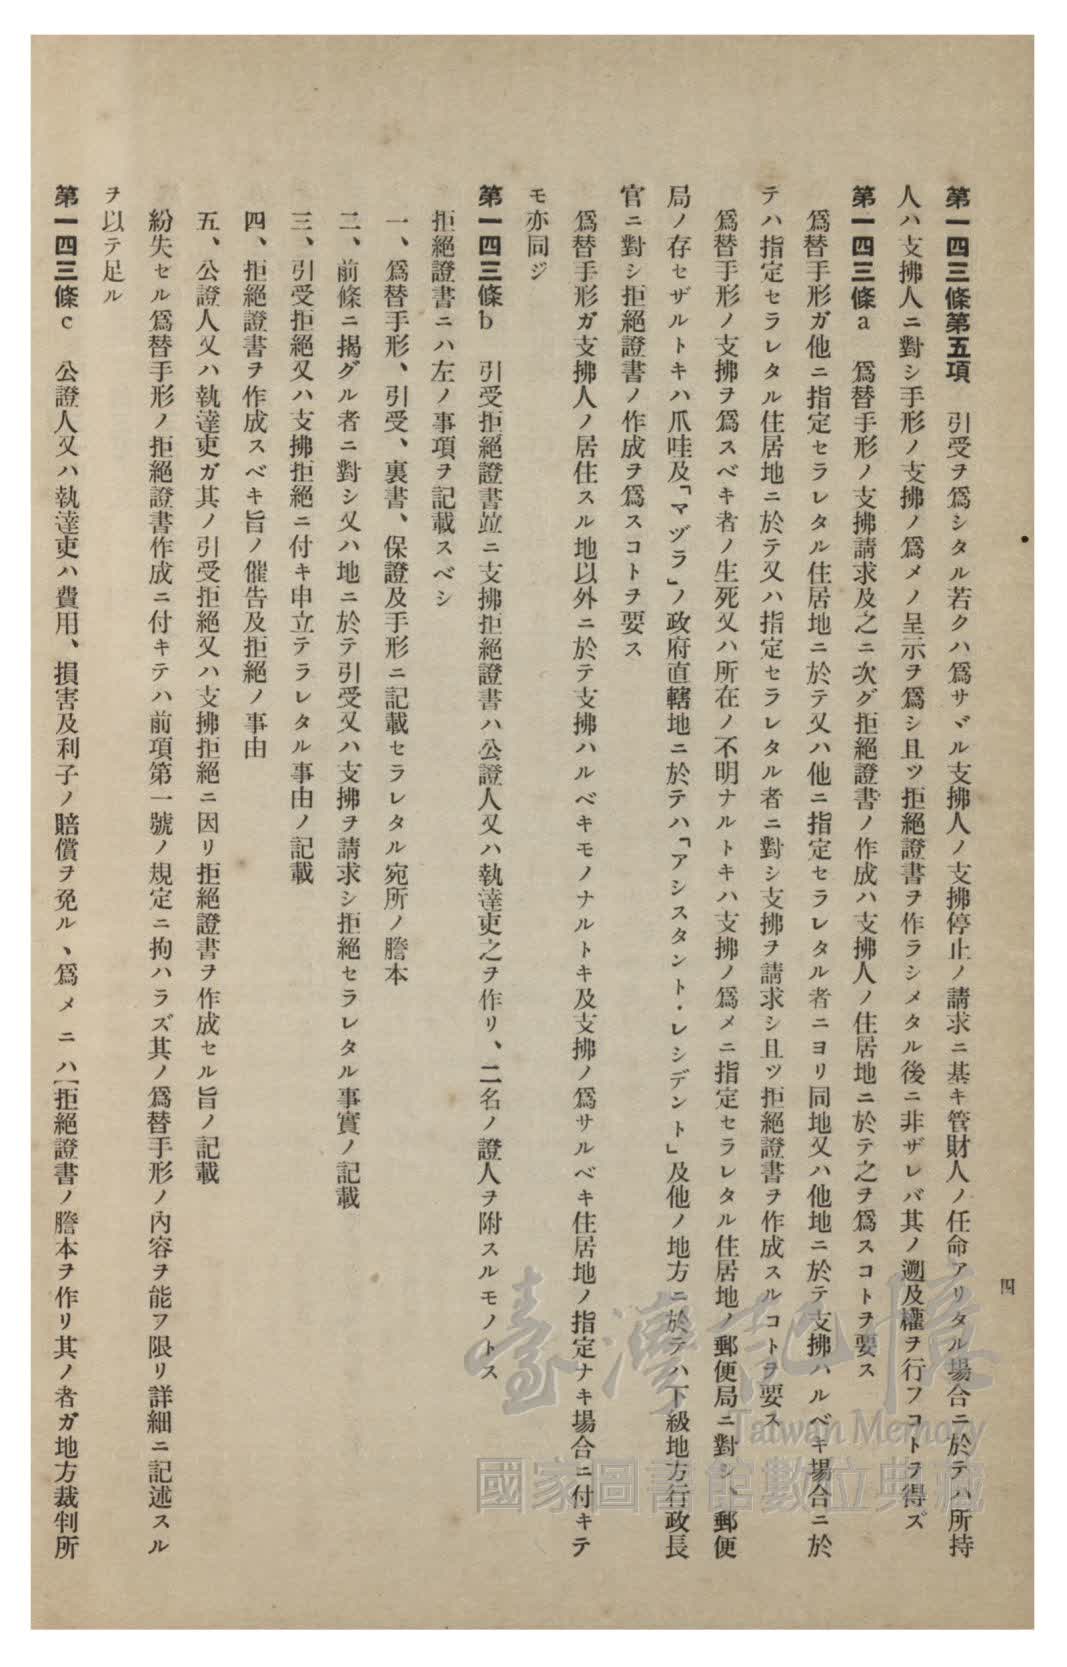 四
第一四三條第五項　引受ヲ爲シタル若クハ爲サヾル支拂人ノ支拂停止ノ請求ニ基キ管財人ノ任命アリタル場合ニ於テハ所持
人ハ支拂人ニ對シ手形ノ支拂ノ爲メノ呈示ヲ爲シ且ツ拒絕證書ヲ作ラシメタル後ニ非ザレバ其ノ遡及權ヲ行フコトヲ得ズ
第一四三條a　爲替手形ノ支拂請求及之ニ次グ拒絕證書ノ作成ハ支拂人ノ住居地ニ於テ之ヲ爲スコトヲ要ス
爲替手形ガ他ニ指定セラレタル住居地ニ於テ又ハ他ニ指定セラレタル者ニヨリ同地又ハ他地ニ於テ支拂ハルベキ場合ニ於
テハ指定セラレタル住居地ニ於テ又ハ指定セラレタル者ニ對シ支拂ヲ請求シ且ツ拒絕證書ヲ作成スルコトヲ要ス
爲替手形ノ支拂ヲ爲スベキ者ノ生死又ハ所在ノ不明ナルトキハ支拂ノ爲メニ指定セラレタル住居地ノ郵便局ニ對シ、郵便
局ノ存セザルトキハ爪哇及「マヅラ」ノ政府直轄地ニ於テハ「アシスタント・レシデント」及他ノ地方ニ於テハ下級地方行政長
官ニ對シ拒絕證書ノ作成ヲ爲スコトヲ要ス
爲替手形ガ支拂人ノ居住スル地以外ニ於テ支拂ハルベキモノナルトキ及支拂ノ爲サルベキ住居地ノ指定ナキ場合ニ付キテ
モ亦同ジ
第一四三條b　引受拒絕證書竝ニ支拂拒絕證書ハ公證人又ハ執達吏之ヲ作リ、二名ノ證人ヲ附スルモノトス
拒絕證書ニハ左ノ事項ヲ記載スベシ
一、爲替手形、引受、裏書、保證及手形ニ記載セラレタル宛所ノ謄本
二、前條ニ揭グル者ニ對シ又ハ地ニ於テ引受又ハ支拂ヲ請求シ拒絕セラレタル事實ノ記載
三、引受拒絕又ハ支拂拒絕ニ付キ申立テラレタル事由ノ記載
四、拒絕證書ヲ作成スベキ旨ノ催告及拒絕ノ事由
五、公證人又ハ執達吏ガ其ノ引受拒絕又ハ支拂拒絕ニ因リ拒絕證書ヲ作成セル旨ノ記載
紛失セル爲替手形ノ拒絕證書作成ニ付キテハ前項第一號ノ規定ニ拘ハラズ其ノ爲替手形ノ內容ヲ能フ限リ詳細ニ記述スル
ヲ以テ足ル
第一四三條c　公證人又ハ執達吏ハ費用、損害及利子ノ賠償ヲ免ル、爲メニハ拒絕證書ノ謄本ヲ作リ其ノ者ガ地方裁判所
臺灣記憶
Taiwan Memory
國家圖書館數位典藏